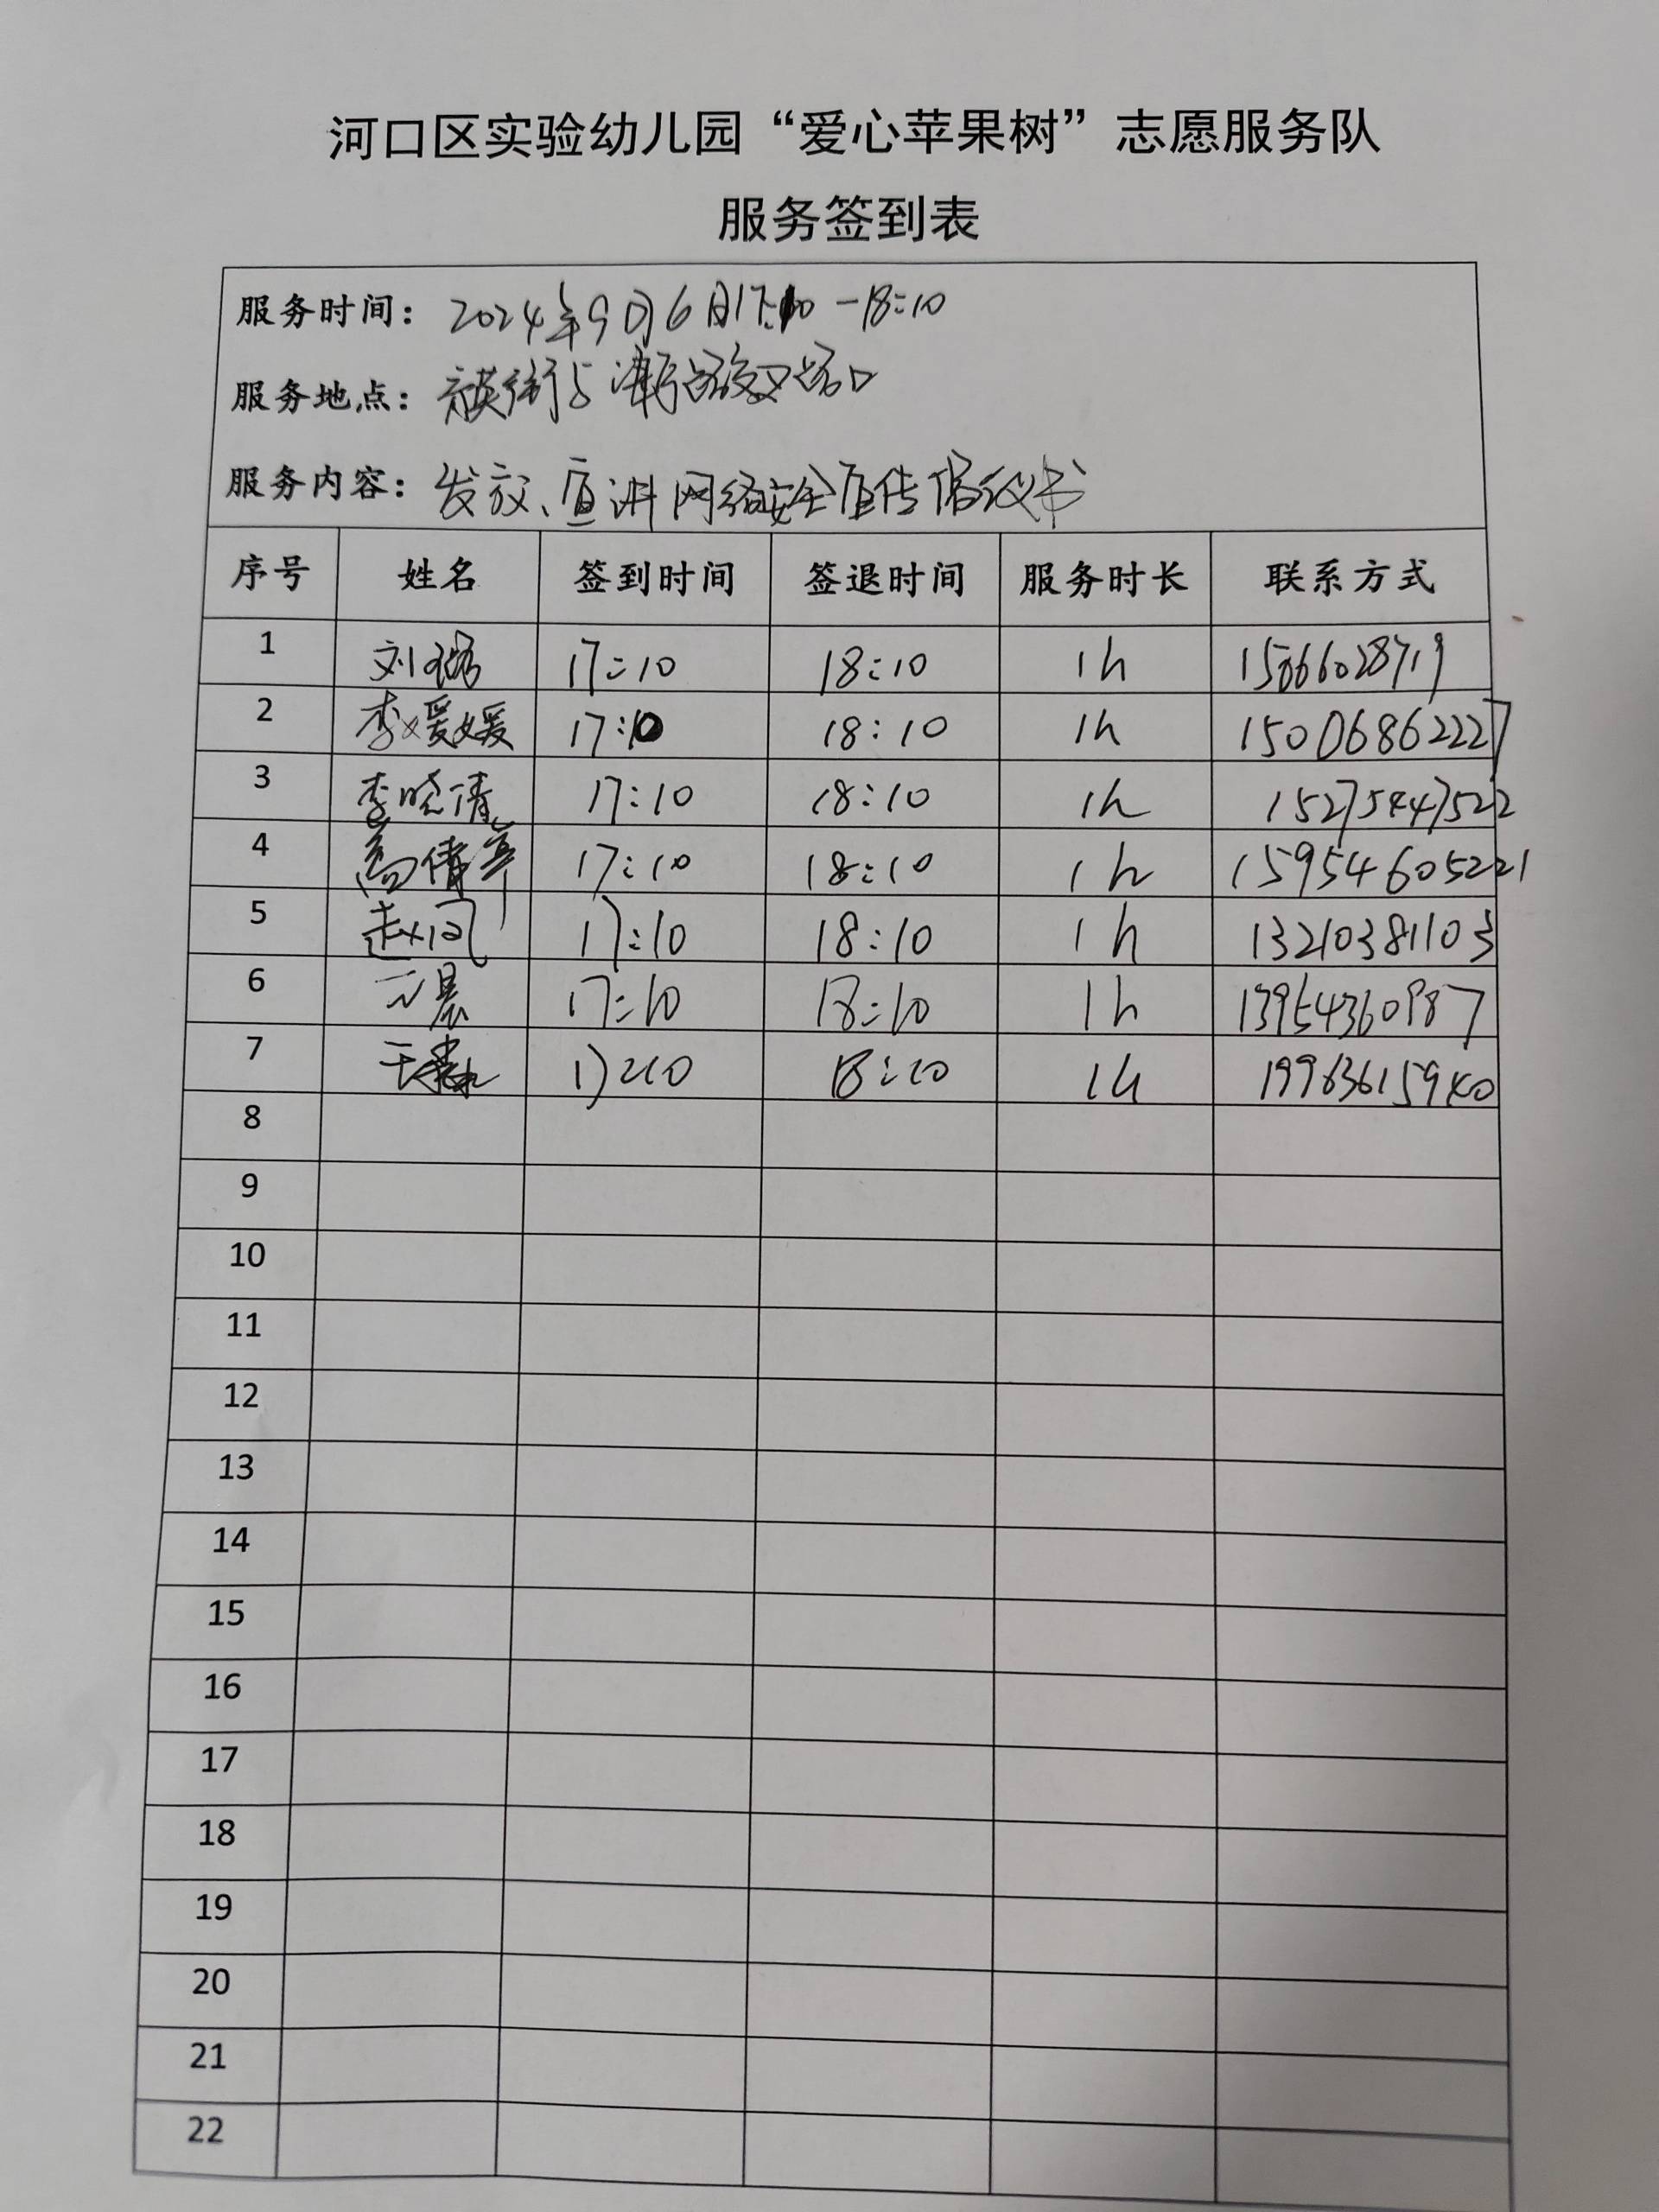 河口区实验幼儿园“爱心苹果树”志愿服务队
服务签到表
服务时间: 2024年9月6日17:10-18:10
服务地点: 路交叉路口
服务内容: 发放、宣讲网络安全宣传倡议书
序号 姓名 签到时间 签退时间 服务时长 联系方式
1 刘璐 17:10 18:10 1h 15666028719
2 李媛媛 17:10 18:10 1h 15006862227
3 李晓倩 17:10 18:10 1h 15275447522
4 高倩 17:10 18:10 1h 15954605221
5 赵凤 17:10 18:10 1h 13210381103
6 晨 17:10 18:10 1h 13954360987
7 17:10 18:10 1h 19963615940
8
9
10
11
12
13
14
15
16
17
18
19
20
21
22